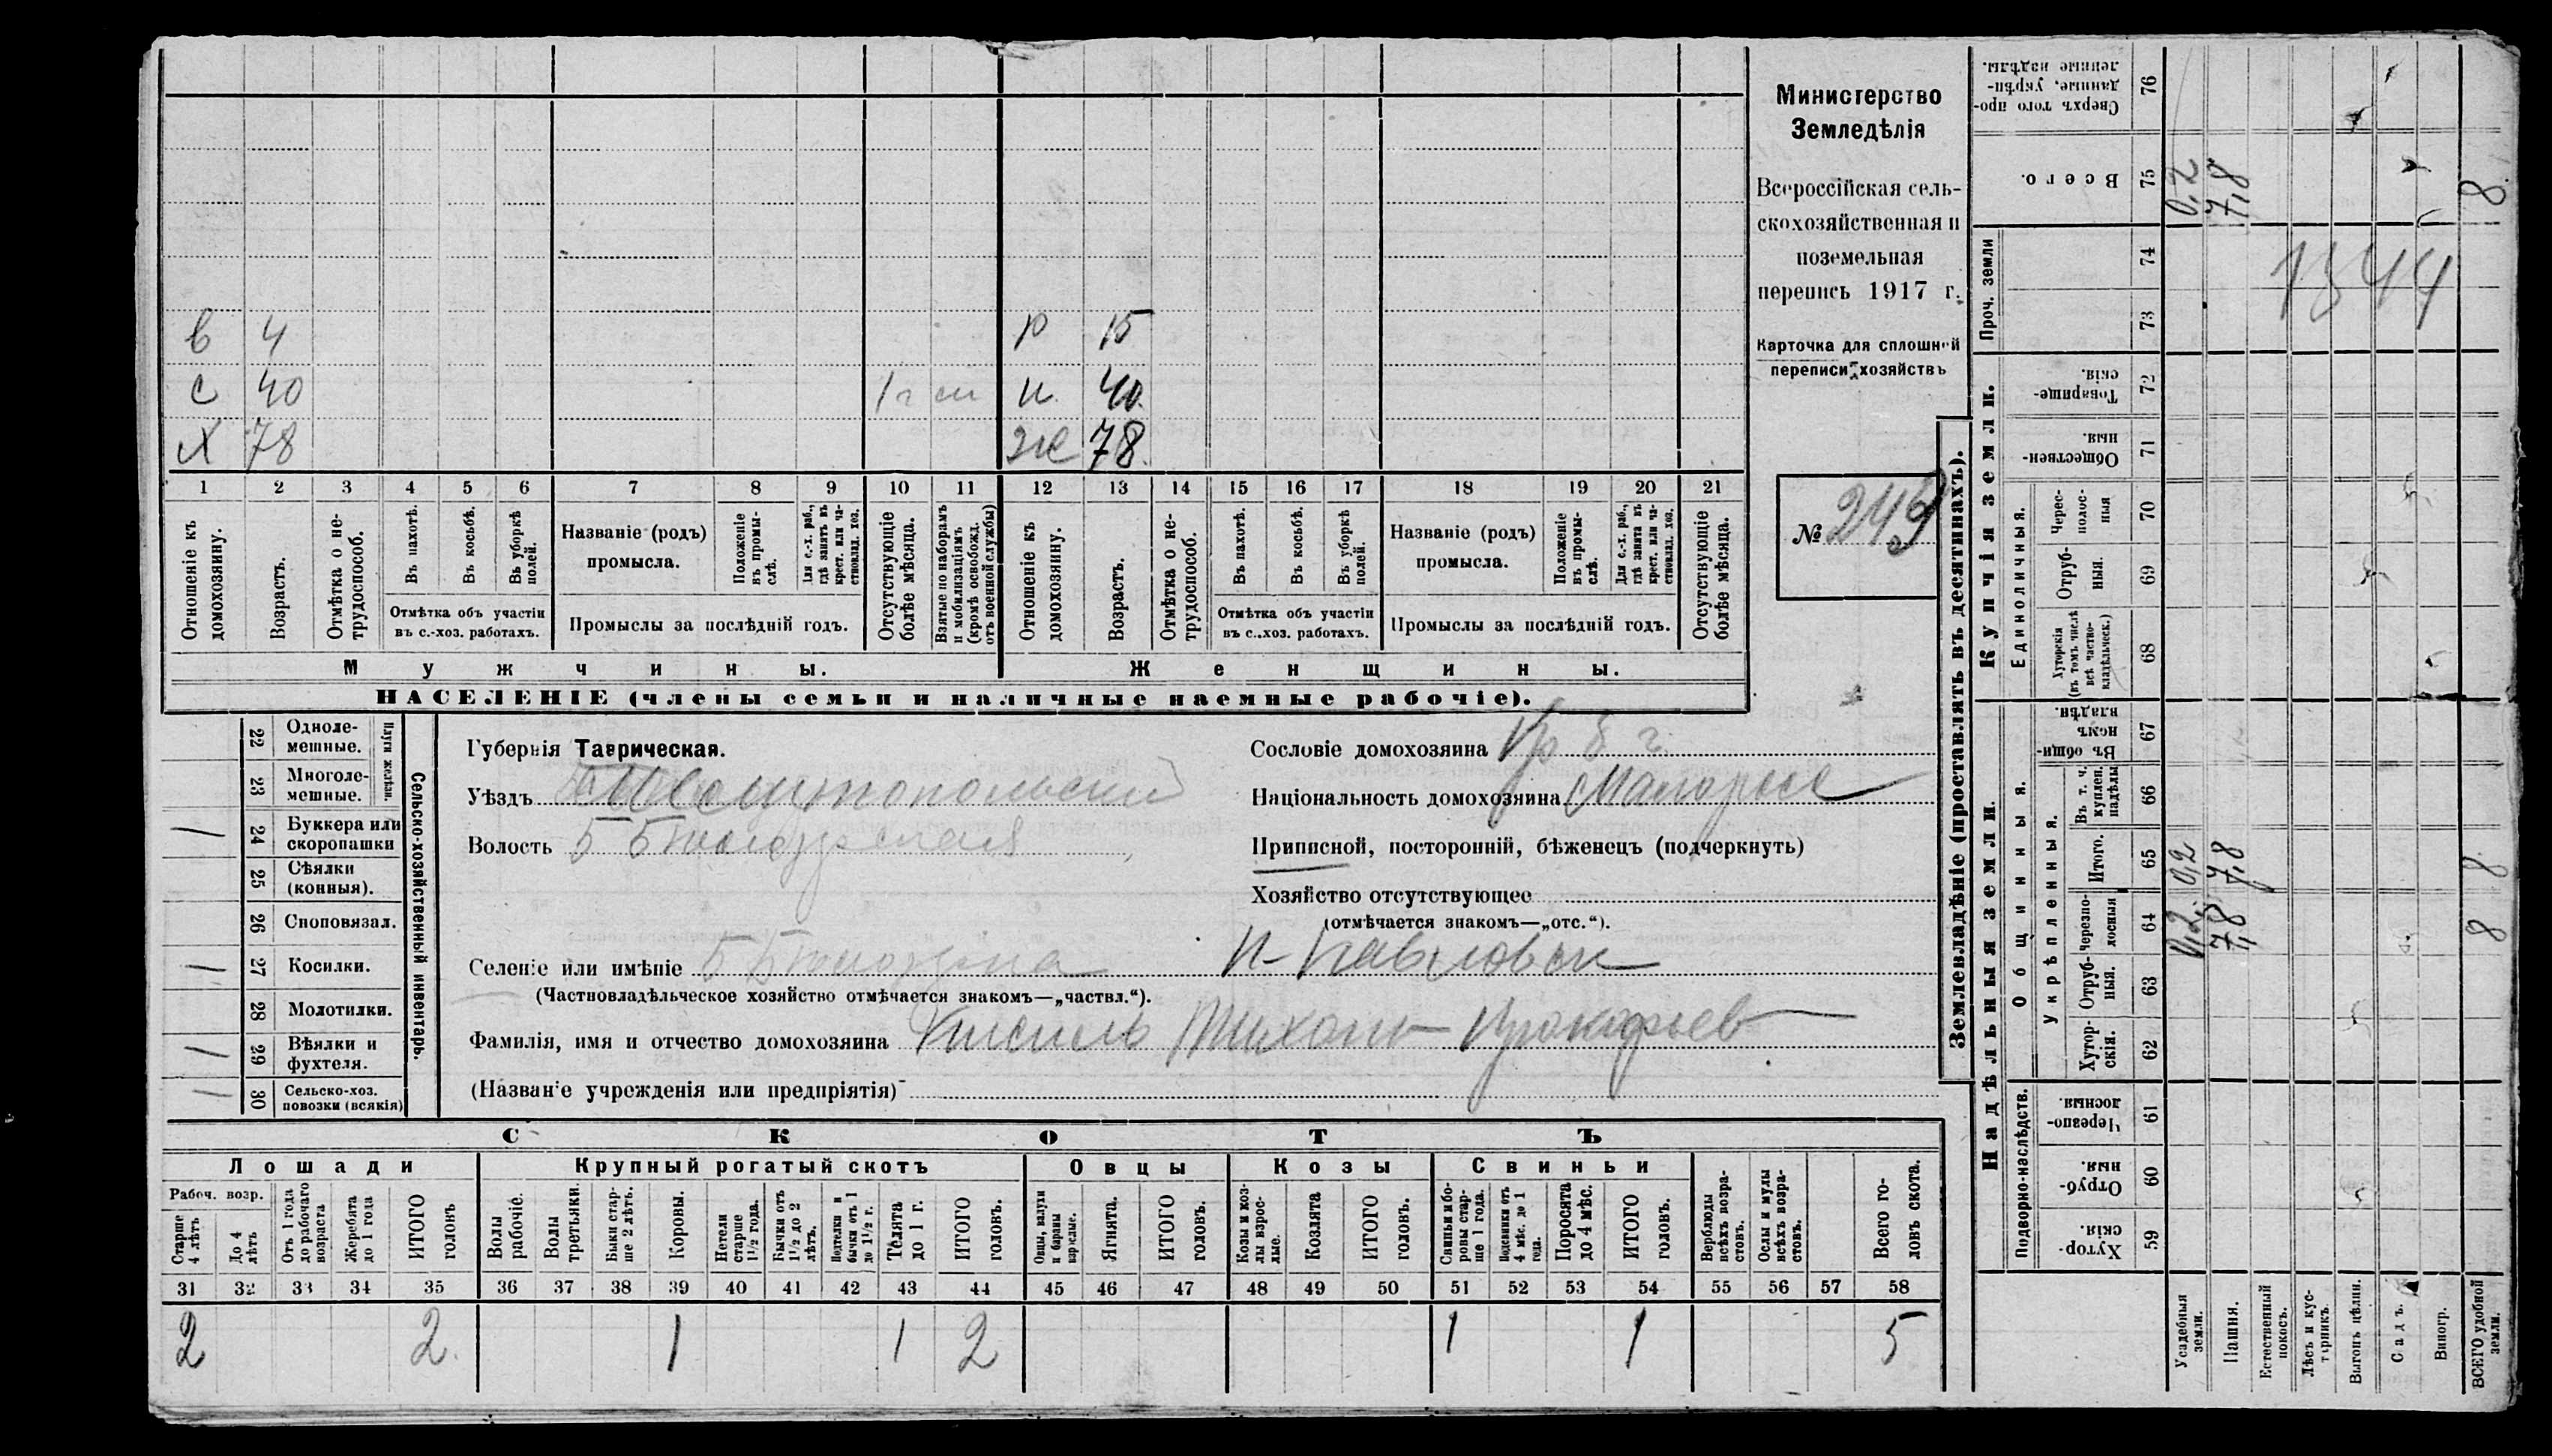 в 4 р 15
с 40 1 г н 40
Х 78 ж 78
1 2 3 4 5 6 7 8 9 10 11 12 13 14 15 16 17 18 19 20 21
Отношеніе къ домохозяину.
Возрастъ.
Отмѣтка о не-
трудоспособ.
Въ пахотѣ.
Въ косьбѣ.
Въ уборкѣ
полей.
Отмѣтка объ участіи
въ с.-хоз. работахъ.
Названіе (родъ)
промысла.
Положеніе
въ промы-
слѣ.
Для с.-х. раб.,
гдѣ занятъ въ
крест. или ча-
стновлад. хоз.
Промыслы за послѣдній годъ.
Отсутствующіе
болѣе мѣсяца.
Взятые по наборамъ
и мобилизаціямъ
(кромѣ освобожд.
отъ военной службы)
Отношеніе къ
домохозяину.
Возрастъ.
Отмѣтка о не-
трудоспособ.
Въ пахотѣ.
Въ косьбѣ.
Въ уборкѣ
полей.
Отмѣтка объ участіи
въ с.-хоз. работахъ.
Названіе (родъ)
промысла.
Положеніе
въ промы-
слѣ.
Для с.-х. раб.,
гдѣ занята въ
крест. или ча-
стновлад. хоз.
Промыслы за послѣдній годъ.
Отсутствующіе
болѣе мѣсяца.
Мужчины. Женщины.
НАСЕЛЕНІЕ (члены семьи и наличные наемные рабочіе).
Министерство
Земледѣлія
Всероссійская сель-
скохозяйственная и
поземельная
перепись 1917 г.
Карточка для сплошной
переписи хозяйствъ
№ 249
22 Одноле-
мешные.
23 Многоле-
мешные.
Плуги желѣзн.
24 Буккера или
скоропашки
25 Сѣялки
(конныя).
26 Сноповязал.
27 Косилки.
28 Молотилки.
29 Вѣялки и
фухтеля.
30 Сельско-хоз.
повозки (всякія)
Сельско-хозяйственный инвентарь.
Губернія Таврическая.
Уѣздъ Мелитопольский
Волость Б Белозерская
Селеніе или имѣніе Б Белозерка Н-Павловск
(Частновладѣльческое хозяйство отмѣчается знакомъ—„частвл.“).
Фамилія, имя и отчество домохозяина Кисиль Тихон Прокофьев
(Названіе учрежденія или предпріятія)
Сословіе домохозяина Кр б г.
Національность домохозяина Малоросс
Приписной, посторонній, бѣженецъ (подчеркнуть)
Хозяйство отсутствующее
(отмѣчается знакомъ—„отс.“).
СКОТЪ
Лошади Крупный рогатый скотъ Овцы Козы Свиньи
Рабоч. возр.
Старше
4 лѣтъ
До 4
лѣтъ
Отъ 1 года
до рабочаго
возраста
Жеребята
до 1 года
ИТОГО
головъ
Волы
рабочіе.
Волы
третьяки.
Быки стар-
ше 2 лѣтъ.
Коровы.
Нетели
старше
1½ года.
Бычки отъ
1½ до 2
лѣтъ.
Подтелки и
бычки отъ 1
до 1½ г.
Телята
до 1 г.
ИТОГО
головъ.
Овцы, валухи
и бараны
взрослые.
Ягнята.
ИТОГО
головъ.
Козы и коз-
лы взрос-
лые.
Козлята
ИТОГО
головъ.
Свиньи и бо-
ровы стар-
ше 1 года.
Подсвинки отъ
4 мѣс. до 1
года.
Поросята
до 4 мѣс.
ИТОГО
головъ.
Верблюды
всѣхъ возра-
стовъ.
Ослы и мулы
всѣхъ возра-
стовъ.
Всего го-
ловъ скота.
31 32 33 34 35 36 37 38 39 40 41 42 43 44 45 46 47 48 49 50 51 52 53 54 55 56 57 58
2 2 1 1 2 1 1 5
Землевладѣніе (проставлять въ десятинахъ).
Надѣльныя земли. Купчія земли. Проч. земли
Подворно-наслѣдств.
Общинныя.
Укрѣпленныя.
Единоличныя.
Хутор-
скія. 59
Отруб-
ныя. 60
Черезпо-
лосныя. 61
Хутор-
скія. 62
Отруб-
ныя. 63
Черезпо-
лосныя 64
Итого. 65
Въ т. ч.
куплен.
надѣлы 66
Въ общин-
номъ
владѣн. 67
Хуторскія
(въ томъ числѣ
всѣ частно-
владѣльческ.) 68
Отруб-
ныя. 69
Черес-
полос-
ныя 70
Обществен-
ныя. 71
Товарище-
скія. 72
73
74
Всего. 75
Сверхъ того про-
данные, укрѣп-
ленные надѣлы. 76
Усадебныя
земли. 0,2 0,2 0,2
Пашня. 7,8 7,8 7,8
Естественный
покосъ.
Лѣсъ и кус-
тарникъ.
Выгонъ цѣлин.
Садъ.
Виногр.
ВСЕГО удобной
земли. 8 8 8
1344